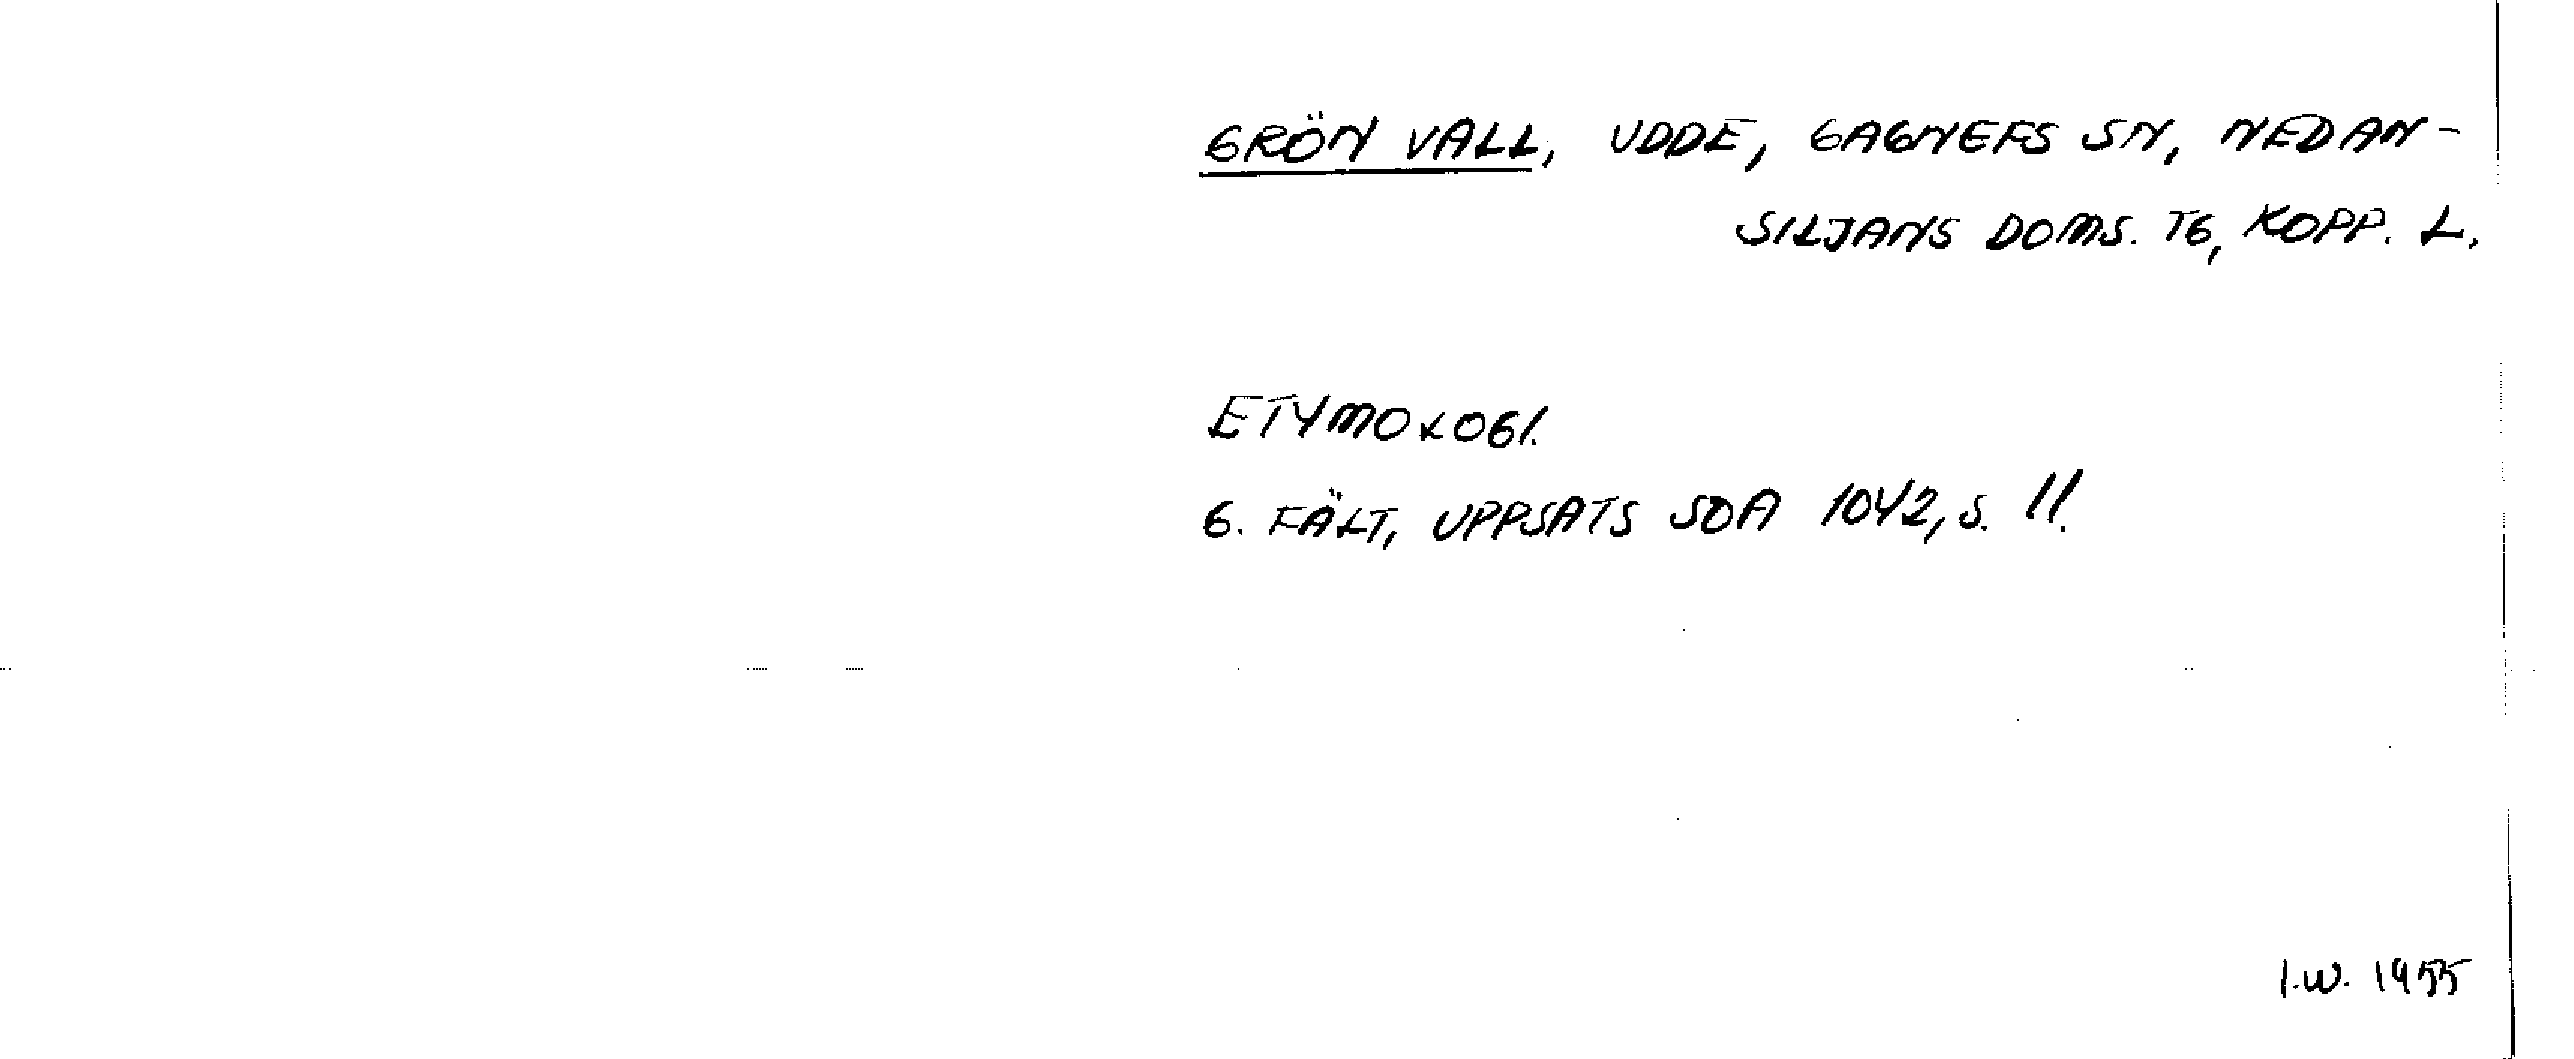 GRÖN VALL, UDDE, GAGNEFS SN, NEDAN-
SILJANS DOMS. TG, KOPP. L.
ETYMOLOGI.
G. FÄLT, UPPSATS SOA 1042, S. 11.
I.W. 1955